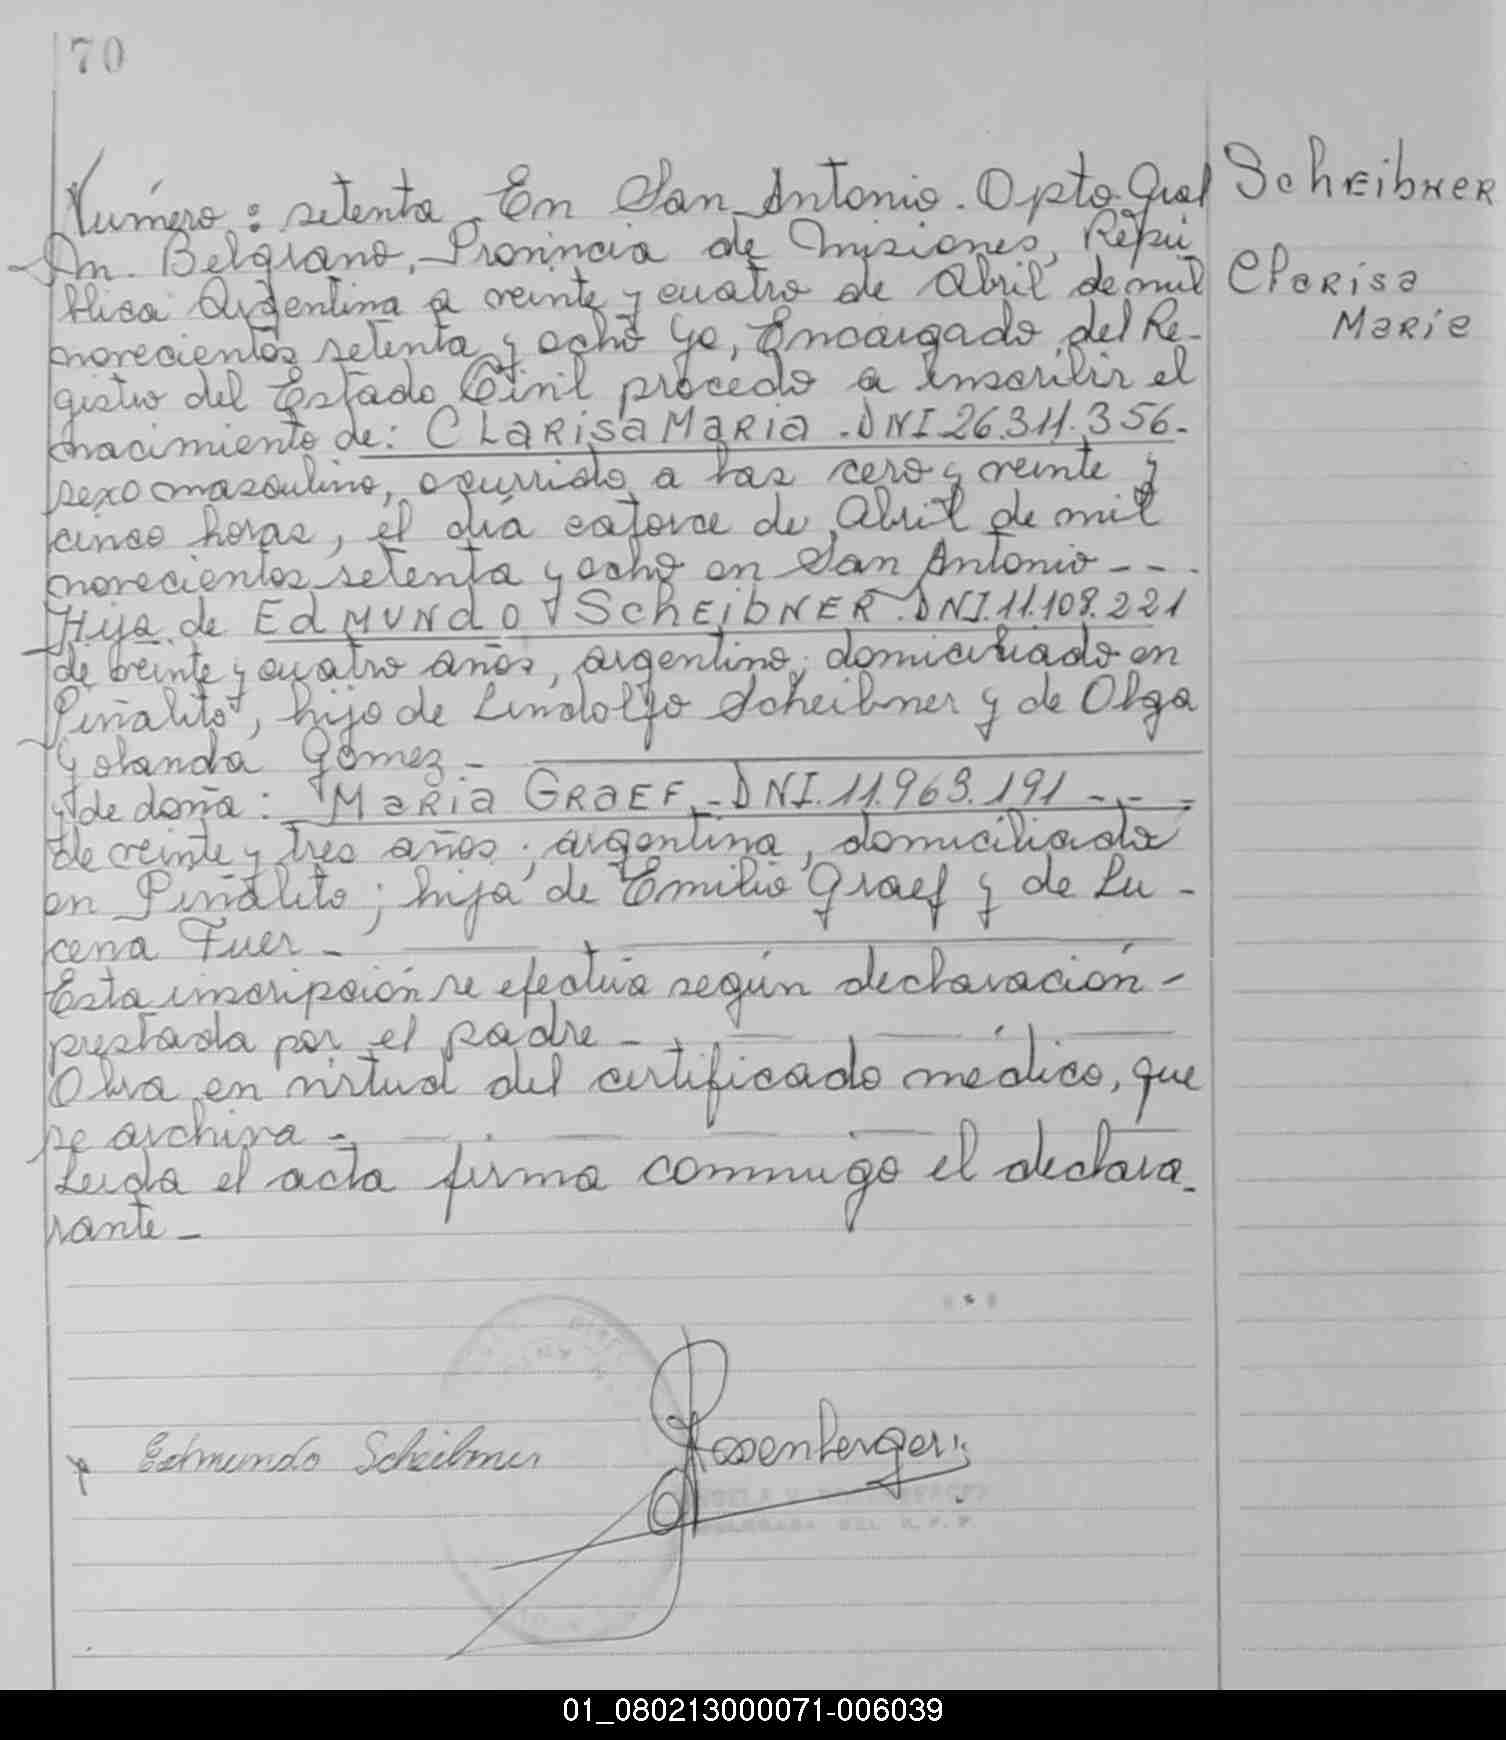 70
Número: setenta. En San Antonio. Dpto. Gral
Scheibner
M. Belgrano, Provincia de Misiones, Repú
blica Argentina a veinte y cuatro de Abril de mil
Clarisa
novecientos setenta y ocho Yo, Encargado del Re-
Maria
gistro del Estado Civil procedo a inscribir el
nacimiento de: CLARISA MARIA - DNI 26.311.356.-
sexo masculino, ocurrido a las cero y veinte y
cinco horas, el día catorce de Abril de mil
novecientos setenta y ocho en San Antonio - - .
Hija de EDMUNDO SCHEIBNER. DNI. 11.108.221
de veinte y cuatro años, argentino, domiciliado en
Piñalito, hijo de Lindolfo Scheibner y de Olga
Yolanda Gomez -
y de doña: MARIA GRAEF. - DNI. 11.963.191 - - -
de veinte y tres años, argentina, domiciliada
en Piñalito; hija de Emilio Graef y de Lu -
cena Fuer -
Esta inscripción se efectúa según declaración -
prestada por el padre -
Obra en virtud del certificado médico, que
se archiva -
Leida el acta firma conmigo el declara-
rante -
Edmundo Scheibner
Rosenberger
01_080213000071-006039